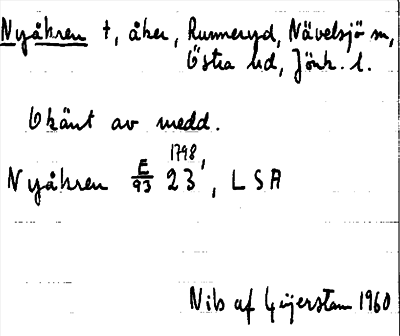 Nyåkren t, åker, Runneryd, Nävelsjö sn,
Östra hd, Jönk. l.
Okänt av medd.
Nyåkren E/93 23 1798, LSA
Nils af Geijerstam 1960